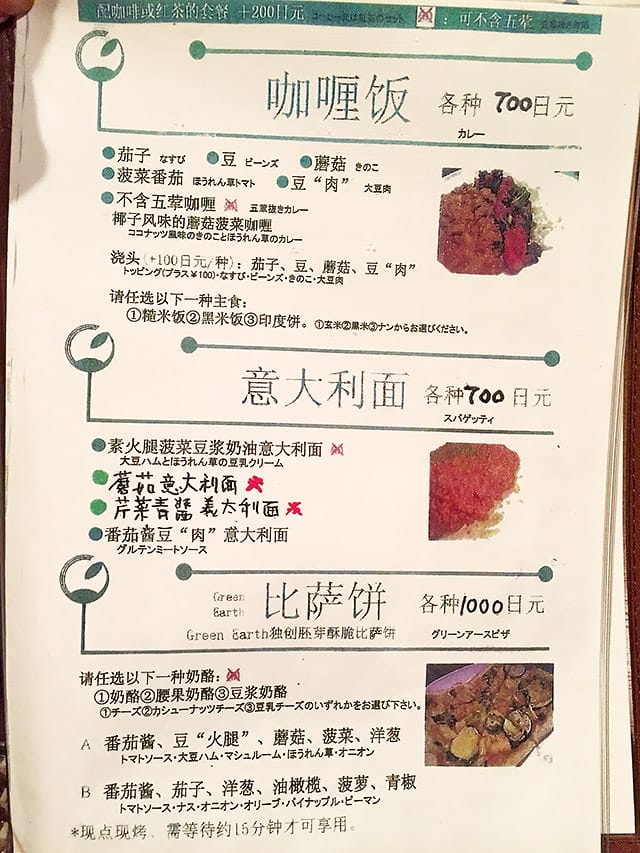 配咖啡或红茶的套餐 +200日元 コーヒー又は紅茶のセット : 可不含五荤
咖喱饭 各种 700日元
カレー
茄子 なすび 豆 ビーンズ 蘑菇 きのこ
菠菜番茄 ほうれん草トマト 豆“肉” 大豆肉
不含五荤咖喱 五葷抜きカレー
椰子风味的蘑菇菠菜咖喱
ココナッツ風味のきのことほうれん草のカレー
浇头(+100日元/种): 茄子、豆、蘑菇、豆“肉”
トッピング(プラス￥100)・なすび・ビーンズ・きのこ・大豆肉
请任选以下一种主食:
①糙米饭②黑米饭③印度饼。①玄米②黒米③ナンからお選びください。
意大利面 各种700日元
スパゲッティ
素火腿菠菜豆浆奶油意大利面
大豆ハムとほうれん草の豆乳クリーム
蘑菇意大利面
芹菜青醬義大利面
番茄酱豆“肉”意大利面
グルテンミートソース
Green Earth 比萨饼 各种1000日元
Green Earth独创胚芽酥脆比萨饼 グリーンアースピザ
请任选以下一种奶酪:
①奶酪②腰果奶酪③豆浆奶酪
①チーズ②カシューナッツチーズ③豆乳チーズのいずれかをお選び下さい。
A 番茄酱、豆“火腿”、蘑菇、菠菜、洋葱
トマトソース・大豆ハム・マシュルーム・ほうれん草・オニオン
B 番茄酱、茄子、洋葱、油橄榄、菠萝、青椒
トマトソース・ナス・オニオン・オリーブ・パイナップル・ピーマン
*现点现烤、需等待约15分钟才可享用。